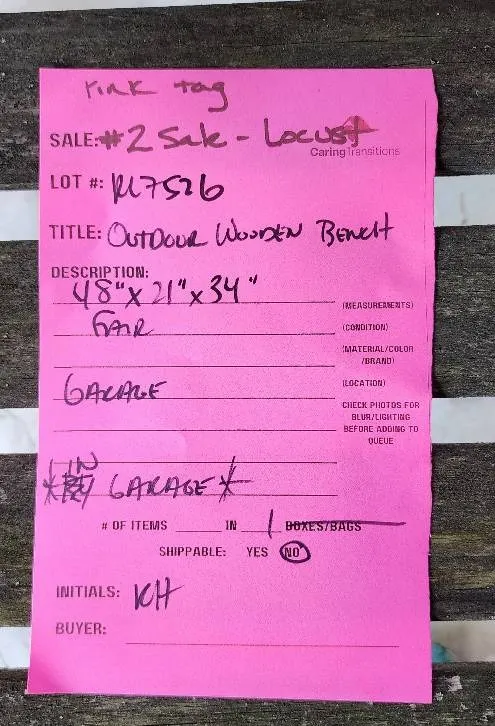 Pink tag
SALE: #2 Sale - Locust
CaringTransitions
LOT #: KL7526
TITLE: OUTDOOR WOODEN BENCH
DESCRIPTION:
48" x 21" x 34"
(MEASUREMENTS)
FAIR
(CONDITION)
(MATERIAL/COLOR
/BRAND)
GARAGE
(LOCATION)
CHECK PHOTOS FOR
BLUR/LIGHTING
BEFORE ADDING TO
QUEUE
IN
* GARAGE *
# OF ITEMS IN 1 BOXES/BAGS
SHIPPABLE: YES NO
INITIALS: KH
BUYER: